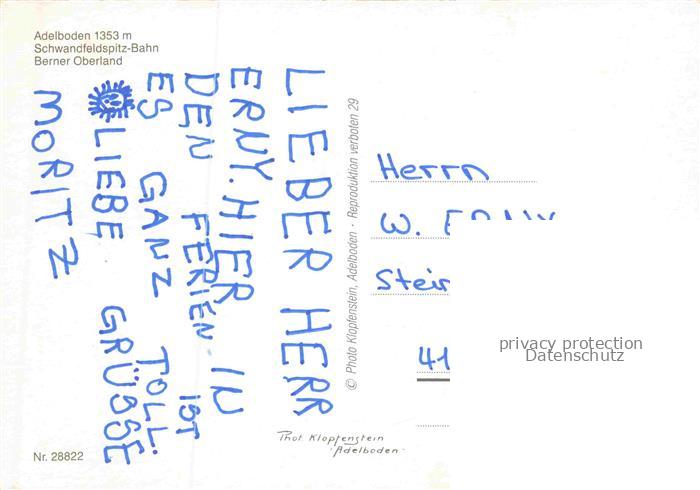 Adelboden 1353 m
Schwandfeldspitz-Bahn
Berner Oberland
LIEBER HERR
ERNY. HIER IN
DEN FERIEN IST
ES GANZ TOLL.
LIEBE GRÜSSE
MORITZ
© Photo Klopfenstein, Adelboden · Reproduktion verboten 29
Herrn
W.
41
privacy protection
Datenschutz
Phot. Klopfenstein
Adelboden
Nr. 28822